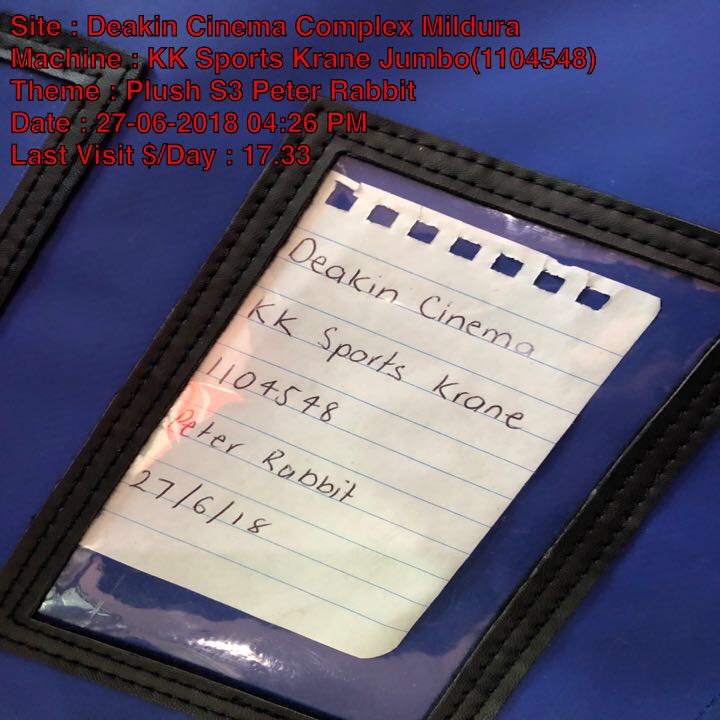 Site : Deakin Cinema Complex Mildura
Machine : KK Sports Krane Jumbo(1104548)
Theme : Plush S3 Peter Rabbit
Date : 27-06-2018 04:26 PM
Last Visit $/Day : 17.33
Deakin Cinema
KK Sports Krane
1104548
Peter Rabbit
27/6/18